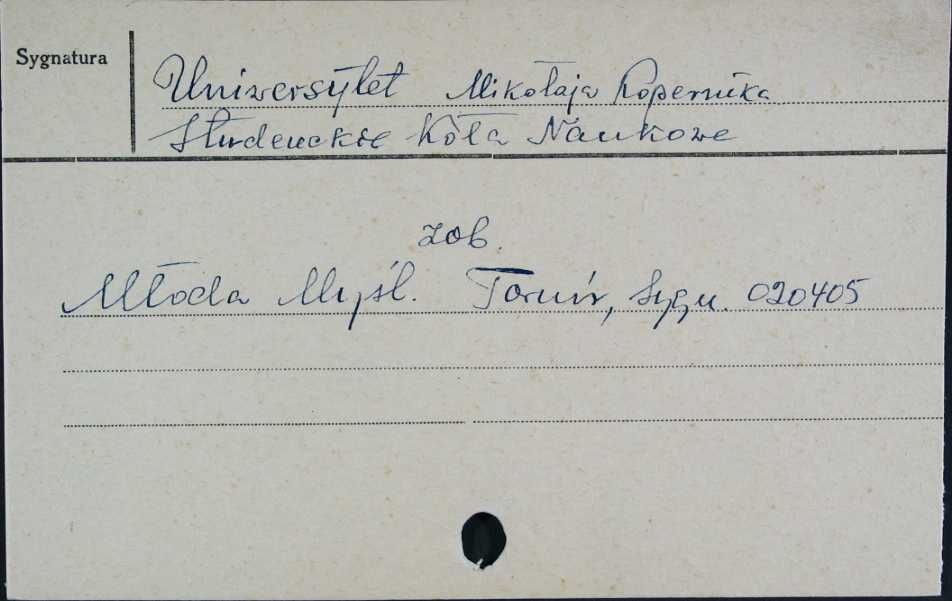 Sygnatura
Uniwersytet Mikołaja Kopernika
Studenckie Koła Naukowe
zob.
Młoda Myśl. Toruń, Sygn. 020405